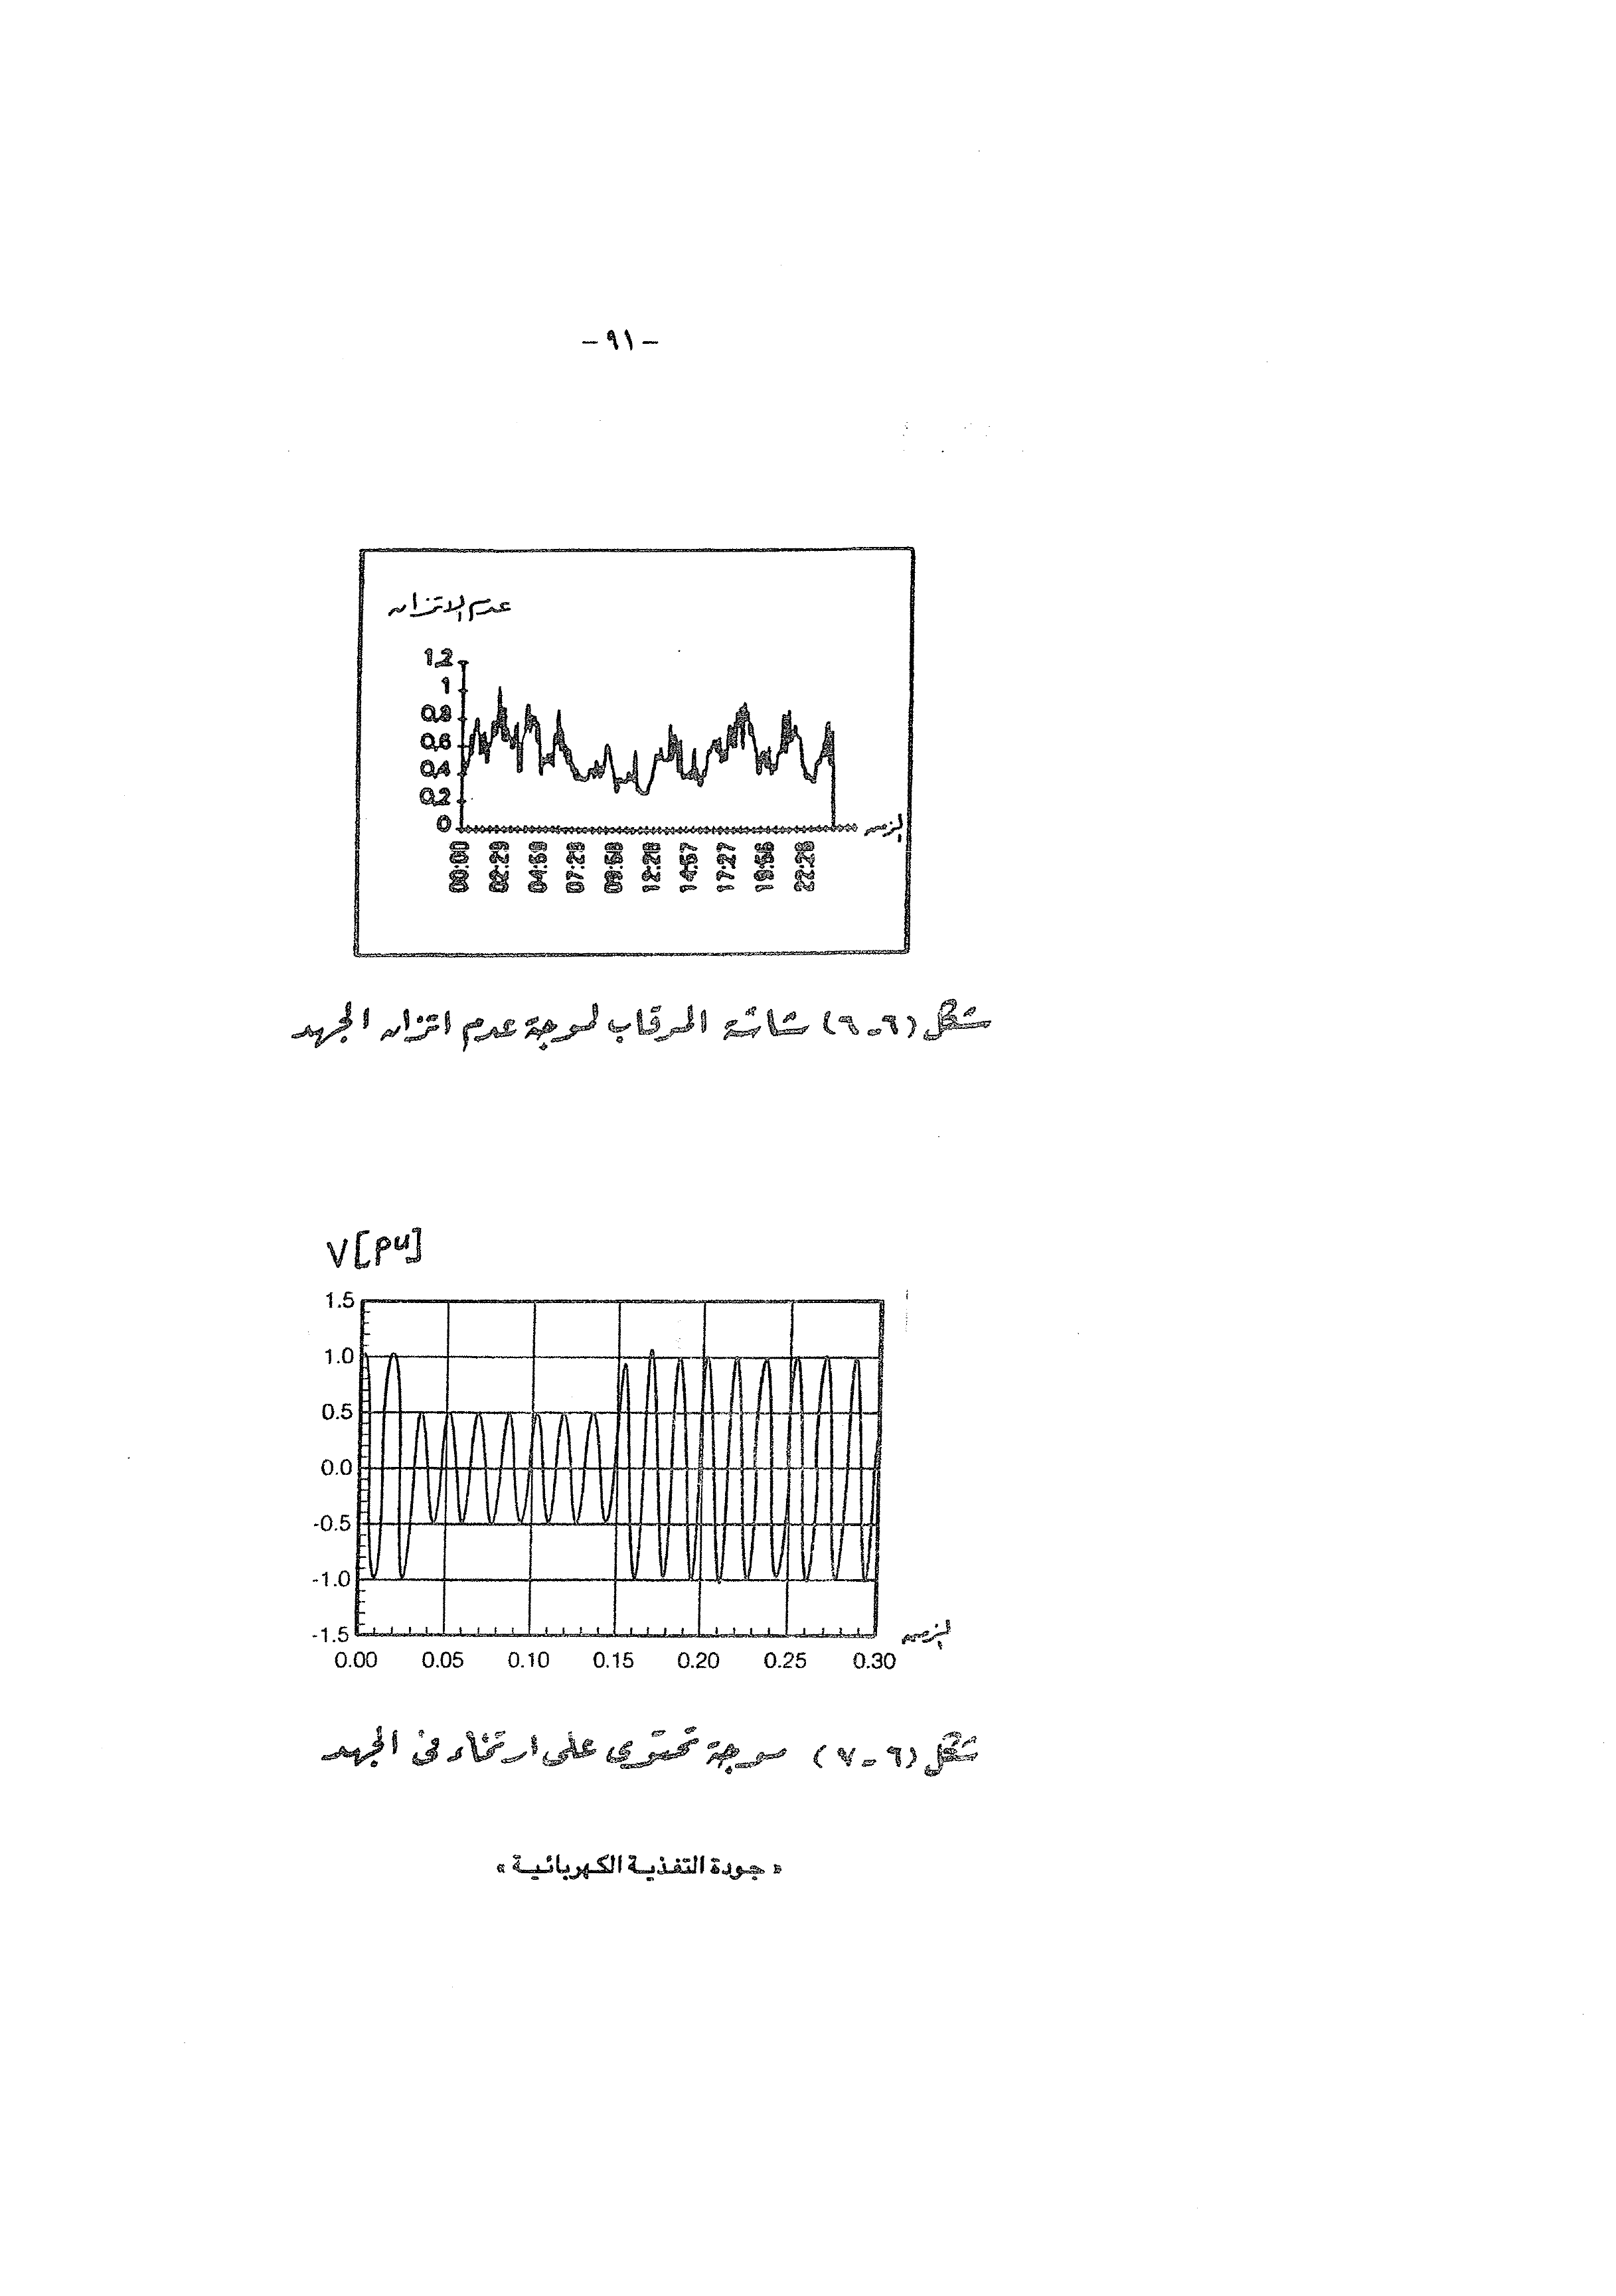 - ٩١ -
عدم الاتزان
1.2
1
0.8
0.6
0.4
0.2
0
الزمن
00:00 02:29 04:59 07:29 09:59 12:28 14:57 17:27 19:56 22:26
شكل (٦-٦) شاشة المرقاب لموجة عدم اتزان الجهد
V[pu]
1.5
1.0
0.5
0.0
-0.5
-1.0
-1.5
الزمن
0.00 0.05 0.10 0.15 0.20 0.25 0.30
شكل (٦-٧) موجة تحتوى على ارتخاء فى الجهد
« جودة التغذية الكهربائية »